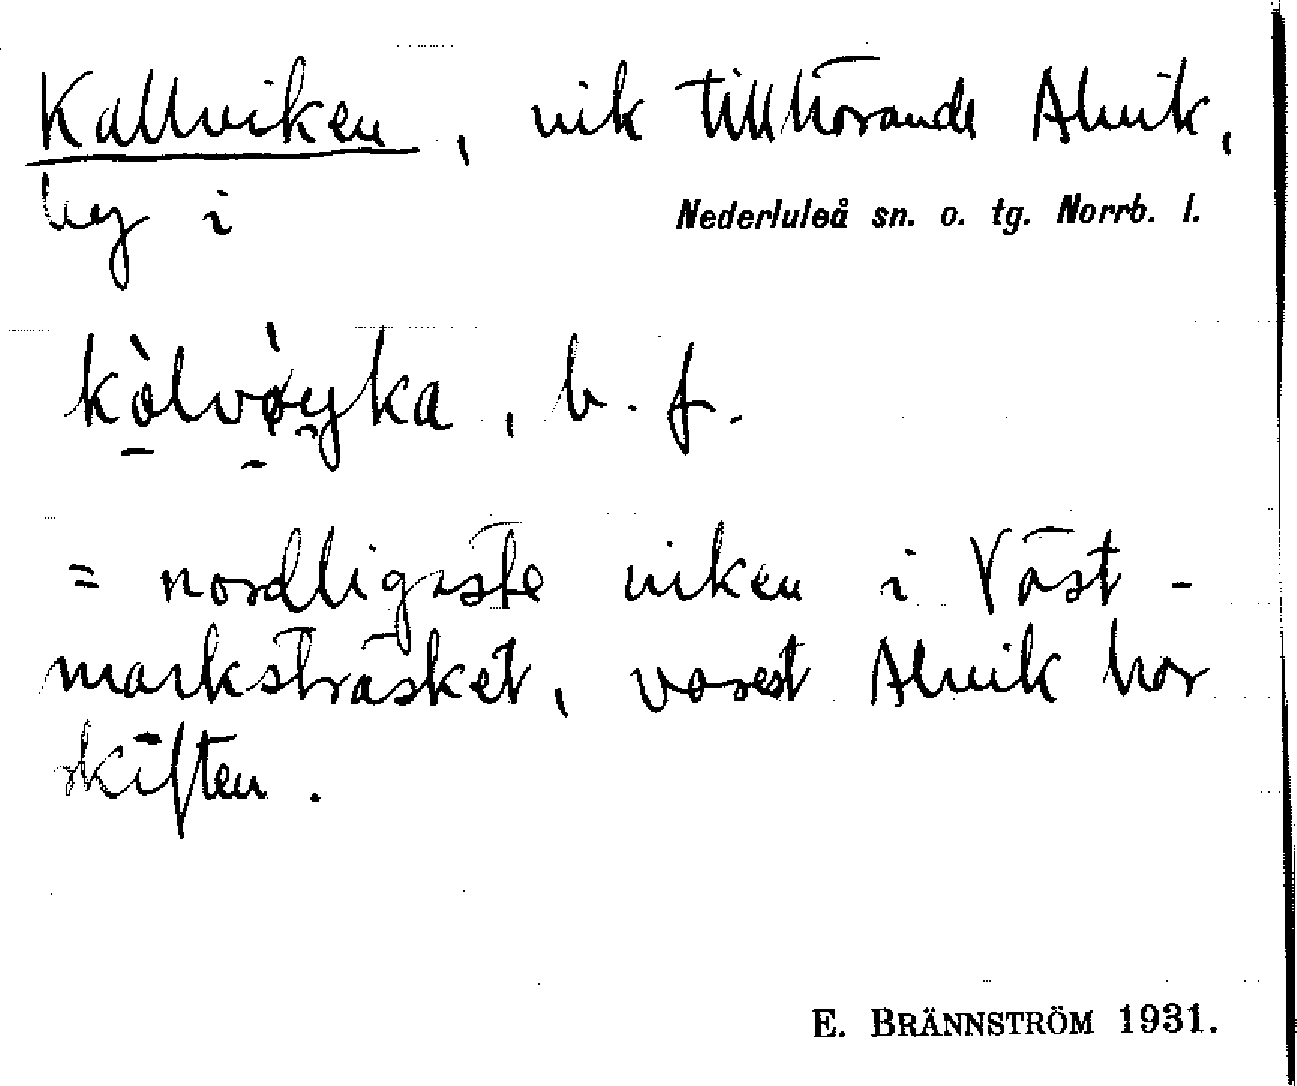 Kallviken, vik tillhörande Alvik,
by i Nederluleå sn. o. tg. Norrb. l.
kàlvòyka, b. f.
= nordligaste viken i Väst-
marksträsket, varest Alvik har
skiften.
E. BRÄNNSTRÖM 1931.